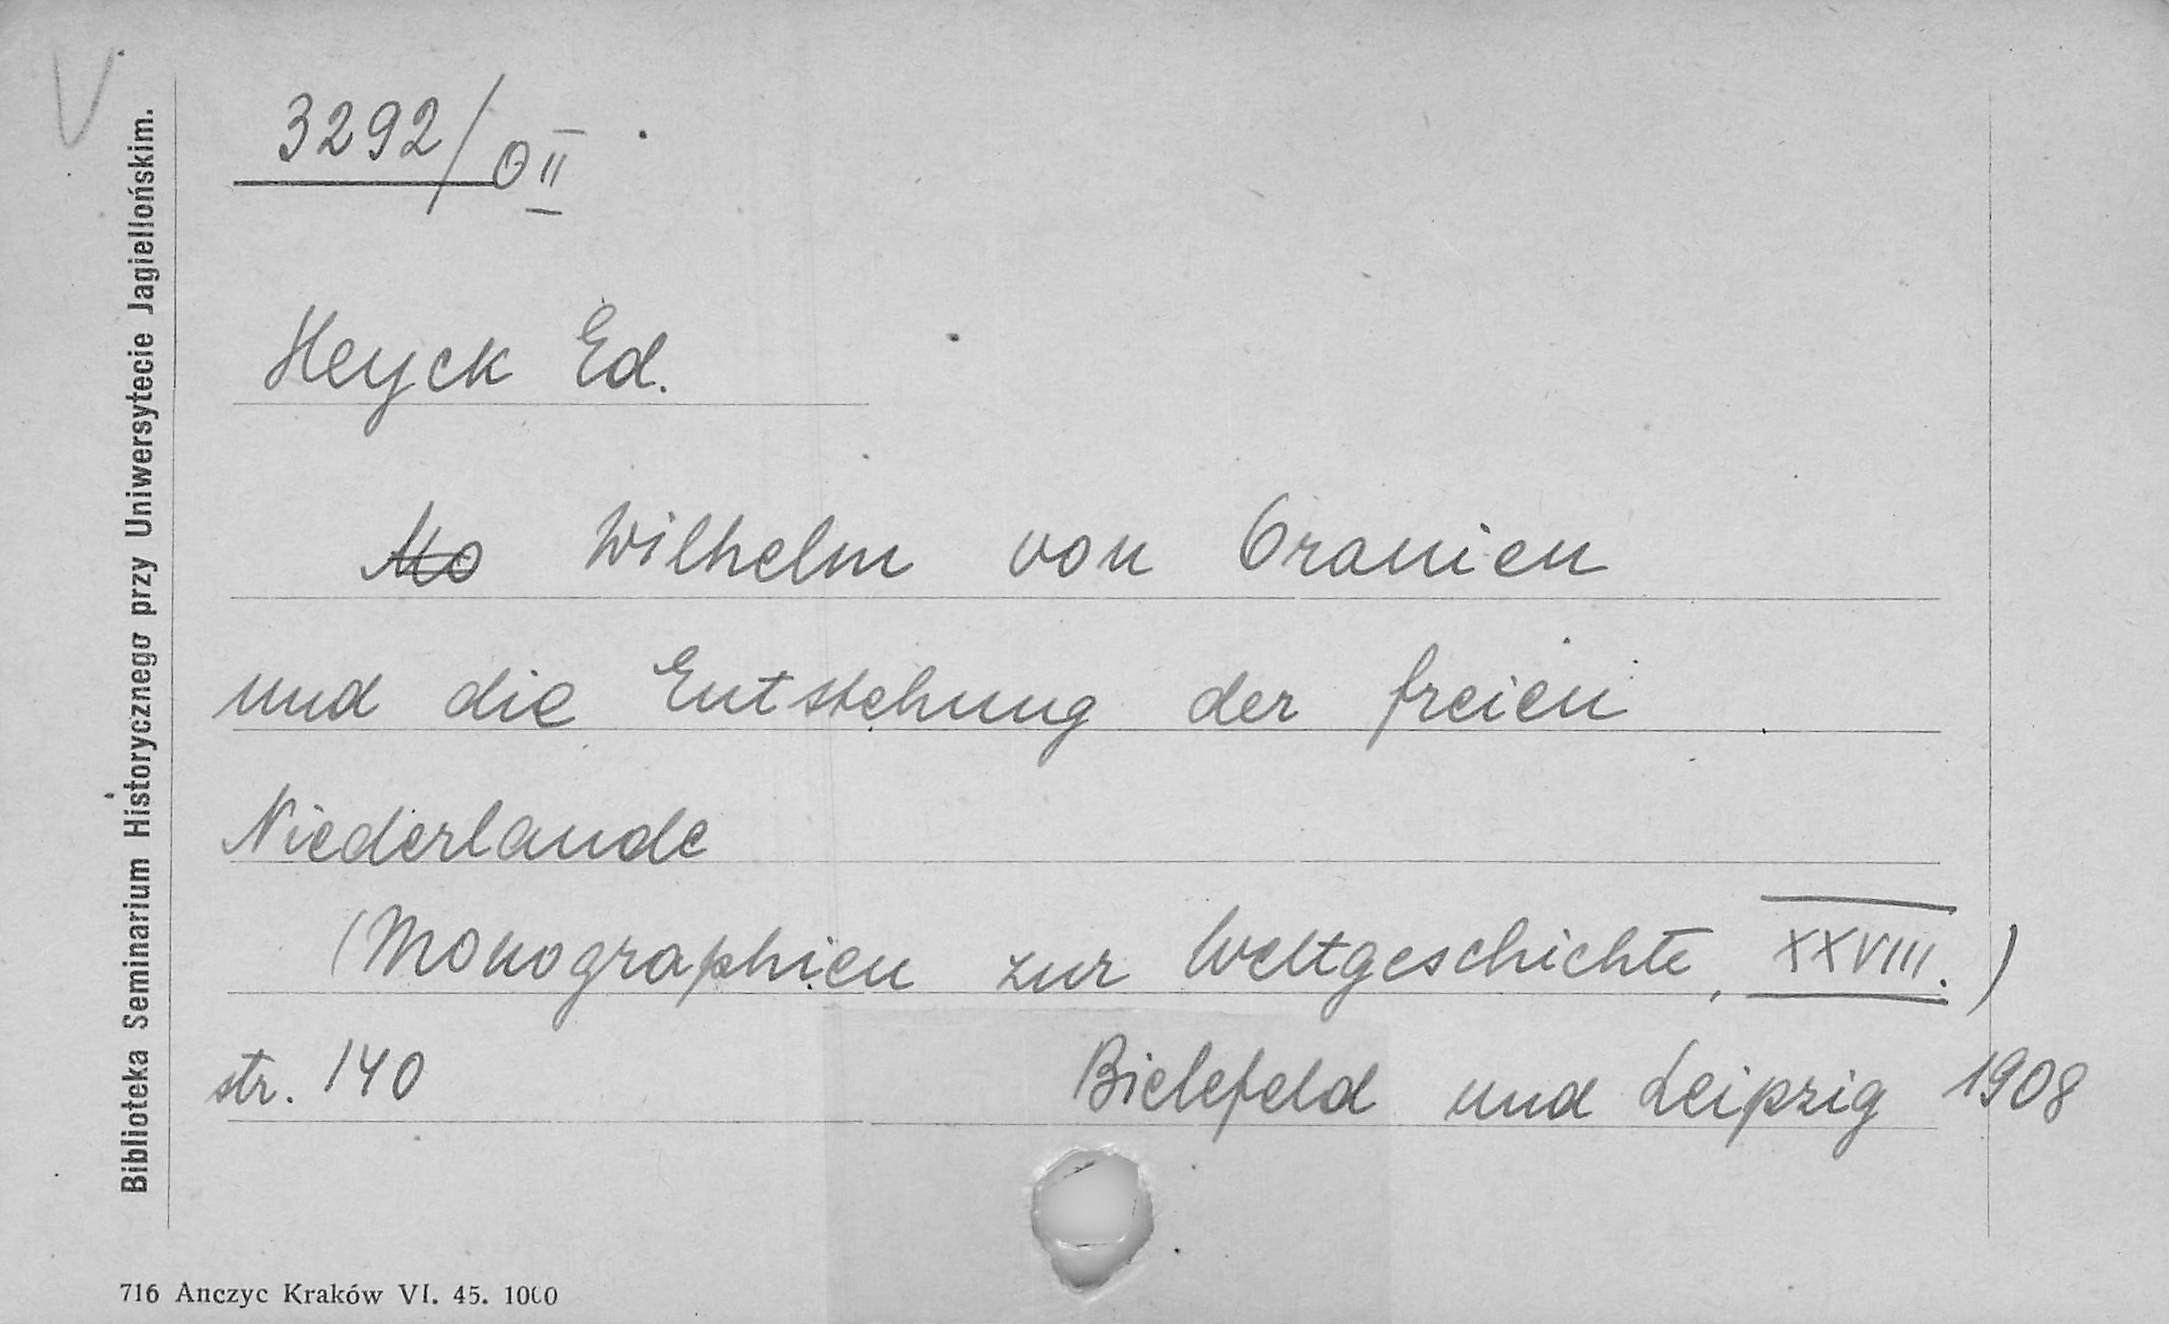 V
Biblioteka Seminarium Historycznego przy Uniwersytecie Jagiellońskim.
3292/O II
Heyck Ed.
Mo Wilhelm von Oranien
und die Entstehung der freien
Niederlande
(Monographien zur Weltgeschichte, XXVIII.)
str. 140 Bielefeld und Leipzig 1908
716 Anczyc Kraków VI. 45. 1000